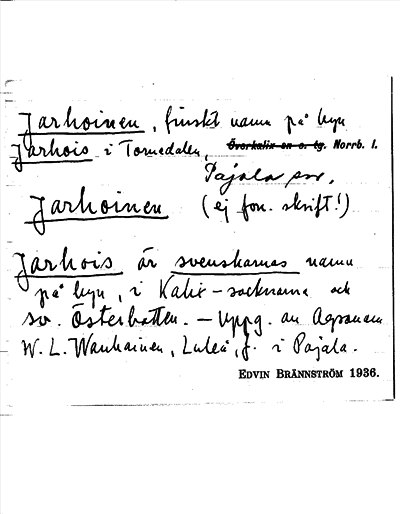 Jarhoinen, finskt namn på byn
Jarhois i Tornedalen, Överkalix sn o. tg. Norrb. l.
Pajala sn.
Jarhoinen (ej fon. skrift!)
Jarhois är svenskarnas namn
på byn, i Kalix-socknarna och
sv. Österbotten. – Uppg. av
W. L. Wanhainen, Luleå, f. i Pajala.
EDVIN BRÄNNSTRÖM 1936.